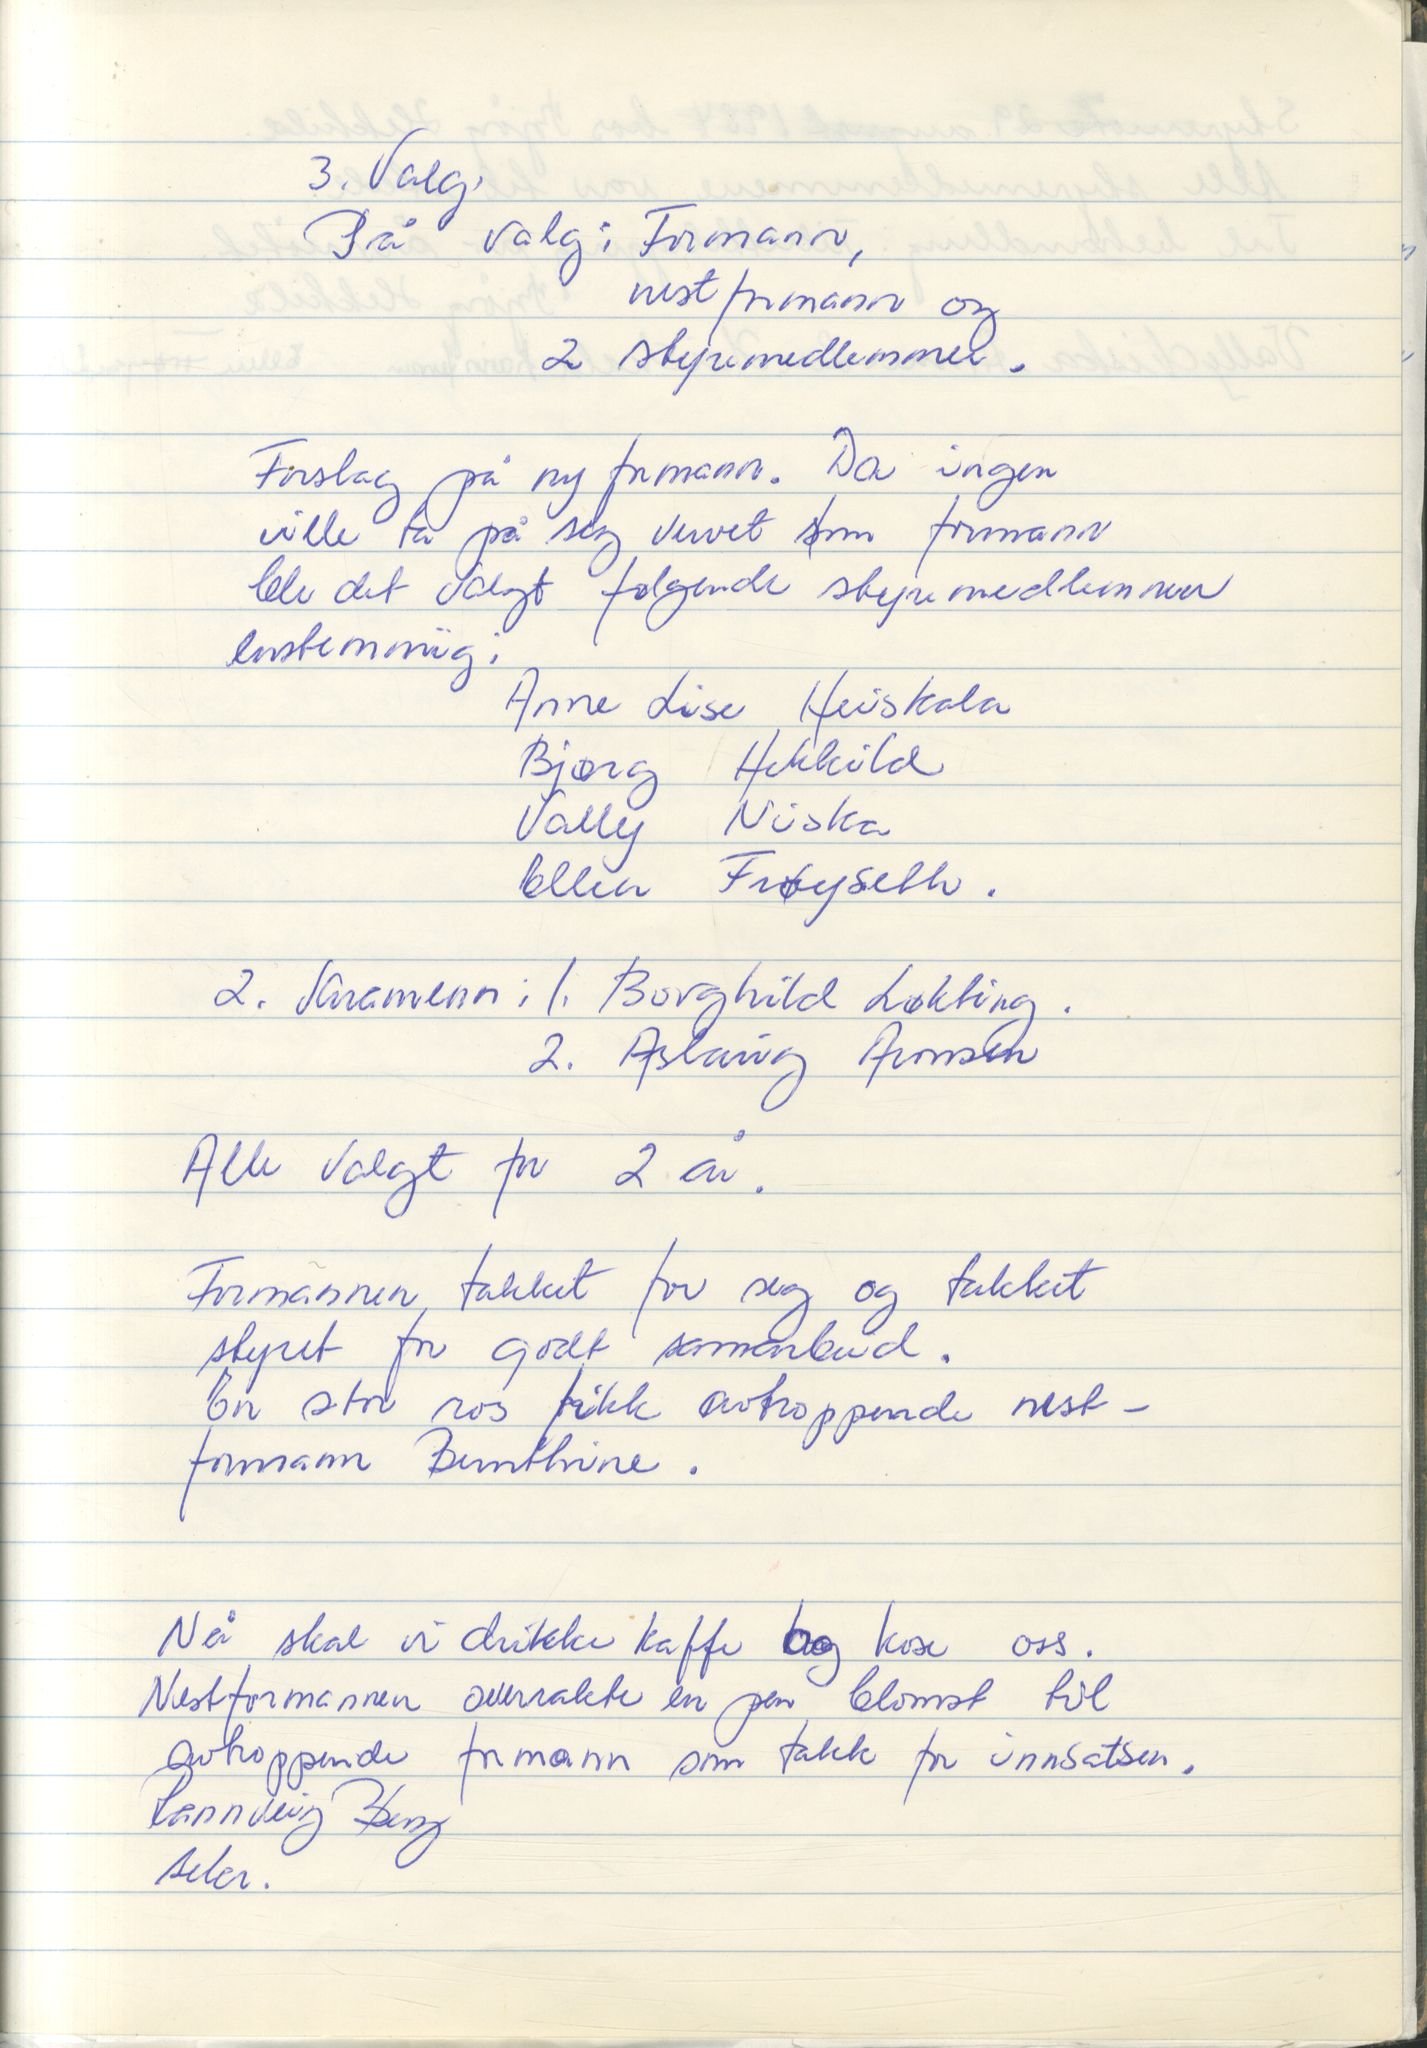 3. Valg:
På valg: Formann,
nestformann og
2 styremedlemmer.
Forslag på ny formann. Da ingen
ville ta på seg vervet som formann
ble det valgt følgende styremedlemmer
enstemmig:
Anne Lise Heiskala
Bjørg Hekkild
Vally Niska
Ellen Frøyseth.
2. Varamenn: 1. Borghild Løkting.
2. Aslaug Aronsen
Alle valgt for 2 år.
Formannen takket for seg og takket
styret for godt samarbeid.
En stor ros fikk avtroppende nest-
formann Bernthine.
Nå skal vi drikke kaffe og kose oss.
Nestformannen overrakte en pen blomst til
avtroppende formann som takk for innsatsen.
Rannveig Berg
sekr.